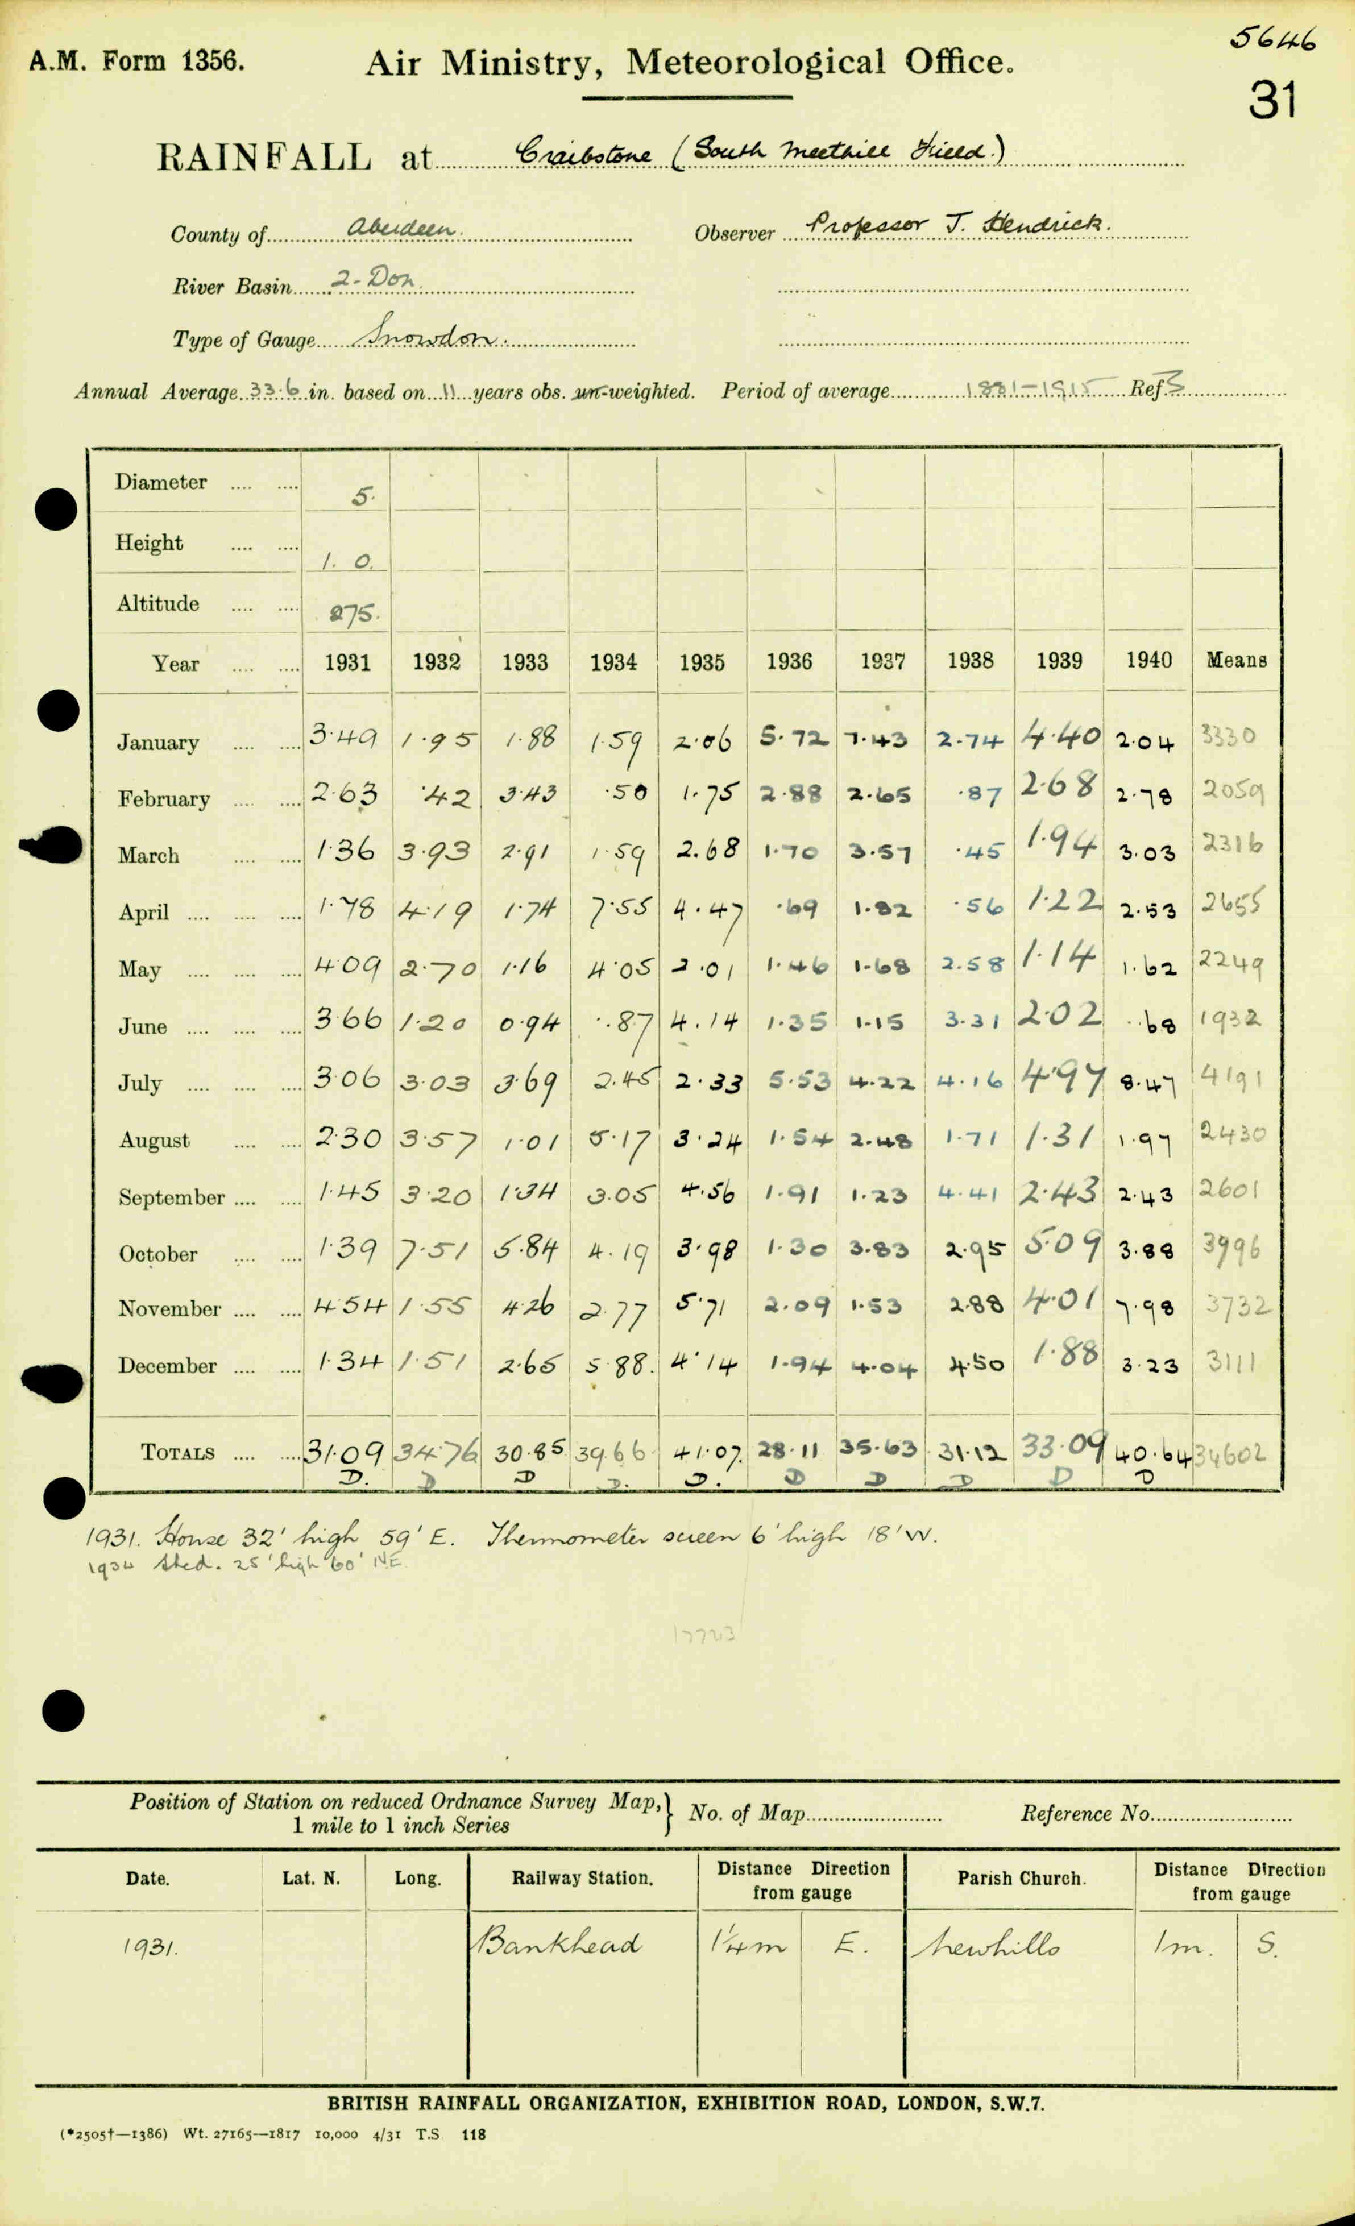 5646
A.M. Form 1356. Air Ministry, Meteorological Office.
31
RAINFALL at Craibstone (South Meethill Field.)
County of Aberdeen. Observer Professor J. Hendrick.
River Basin 2-Don
Type of Gauge Snowdon.
Annual Average 33.6 in. based on 11 years obs. un-weighted. Period of average 1881-1915 Ref 3
Diameter 5.
Height 1. 0.
Altitude 275.
Year 1931 1932 1933 1934 1935 1936 1937 1938 1939 1940 Means
January 3.49 1.95 1.88 1.59 2.06 5.72 7.43 2.74 4.40 2.04 3330
February 2.63 .42 3.43 .50 1.75 2.88 2.65 .87 2.68 2.78 2059
March 1.36 3.93 2.91 1.59 2.68 1.70 3.57 .45 1.94 3.03 2316
April 1.78 4.19 1.74 7.55 4.47 .69 1.82 .56 1.22 2.53 2655
May 4.09 2.70 1.16 4.05 2.01 1.46 1.68 2.58 1.14 1.62 2249
June 3.66 1.20 0.94 .87 4.14 1.35 1.15 3.31 2.02 .68 1932
July 3.06 3.03 3.69 2.45 2.33 5.53 4.22 4.16 4.97 8.47 4191
August 2.30 3.57 1.01 5.17 3.24 1.54 2.48 1.71 1.31 1.97 2430
September 1.45 3.20 1.34 3.05 4.56 1.91 1.23 4.41 2.43 2.43 2601
October 1.39 7.51 5.84 4.19 3.98 1.30 3.83 2.95 5.09 3.88 3996
November 4.54 1.55 4.26 2.77 5.71 2.09 1.53 2.88 4.01 7.98 3732
December 1.34 1.51 2.65 5.88. 4.14 1.94 4.04 4.50 1.88 3.23 3111
TOTALS 31.09 34.76 30.85 39.66 41.07. 28.11 35.63 31.12 33.09 40.64 34602
D. D D D. D. D D D D D
1931. House 32' high 59' E. Thermometer screen 6' high 18' W.
1934 Shed. 25' high 60' NE.
Position of Station on reduced Ordnance Survey Map, } No. of Map Reference No.
1 mile to 1 inch Series
Date. Lat. N. Long. Railway Station. Distance Direction from gauge Parish Church. Distance Direction from gauge
1931. Bankhead 1¼m E. Newhills 1m. S.
BRITISH RAINFALL ORGANIZATION, EXHIBITION ROAD, LONDON, S.W.7.
(*2505†—1386) Wt. 27165—1817 10,000 4/31 T.S 118